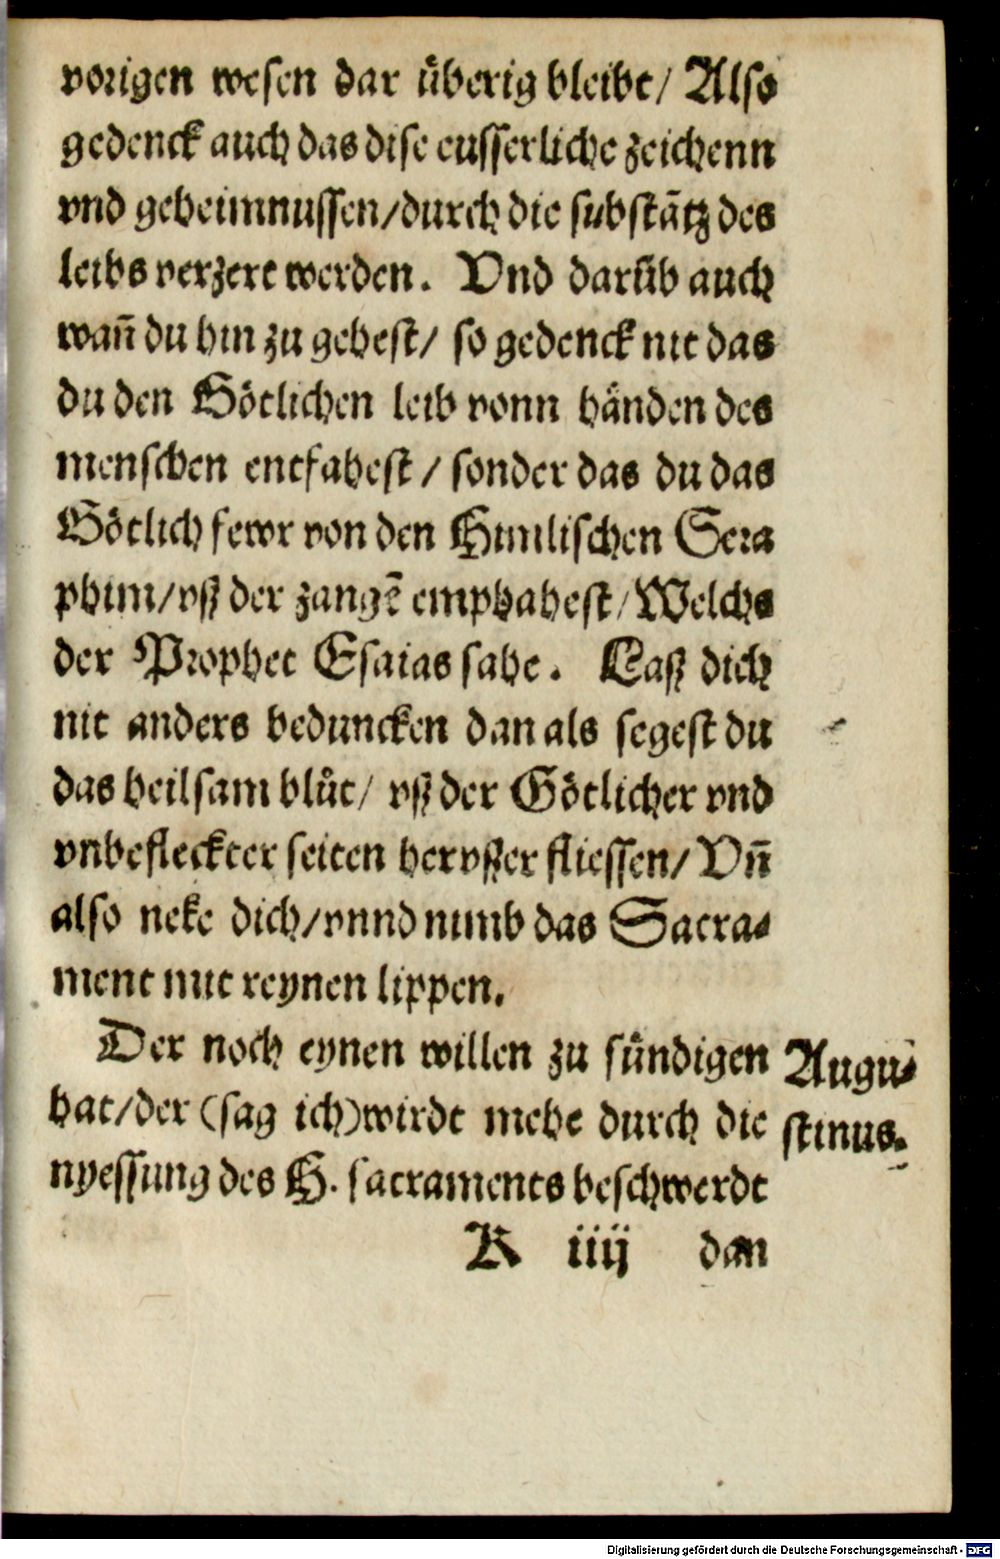 vorigen wesen dar uͤberig bleibt/ Also
gedenck auch das dise eusserliche zeichenn
vnd geheimnussen/durch die substātz des
leibs verzert werden. Vnd daruͤb auch
wan̄ du hin zu gehest/ so gedenck nit das
du den Goͤtlichen leib vonn haͤnden des
menschen entfahest/ sonder das du das
Goͤtlich fewr von den Himlischen Sera
phim/vß der zangē emphahest/Welchs
der Prophet Esaias sahe. Laß dich
nit anders beduncken dan als segest du
das heilsam bluͦt/ vß der Goͤtlicher vnd
vnbefleckter seiten hervßer fliessen/ Vn̄
also neke dich/vnnd nimb das Sacra⸗
ment mit reynen lippen.
Der noch eynen willen zu suͤndigen
hat/der (sag ich)wirdt mehe durch die
nyessung des H. sacraments beschwerdt
Augu⸗
stinus.
K iiij dan
Digitalisierung gefördert durch die Deutsche Forschungsgemeinschaft - DFG